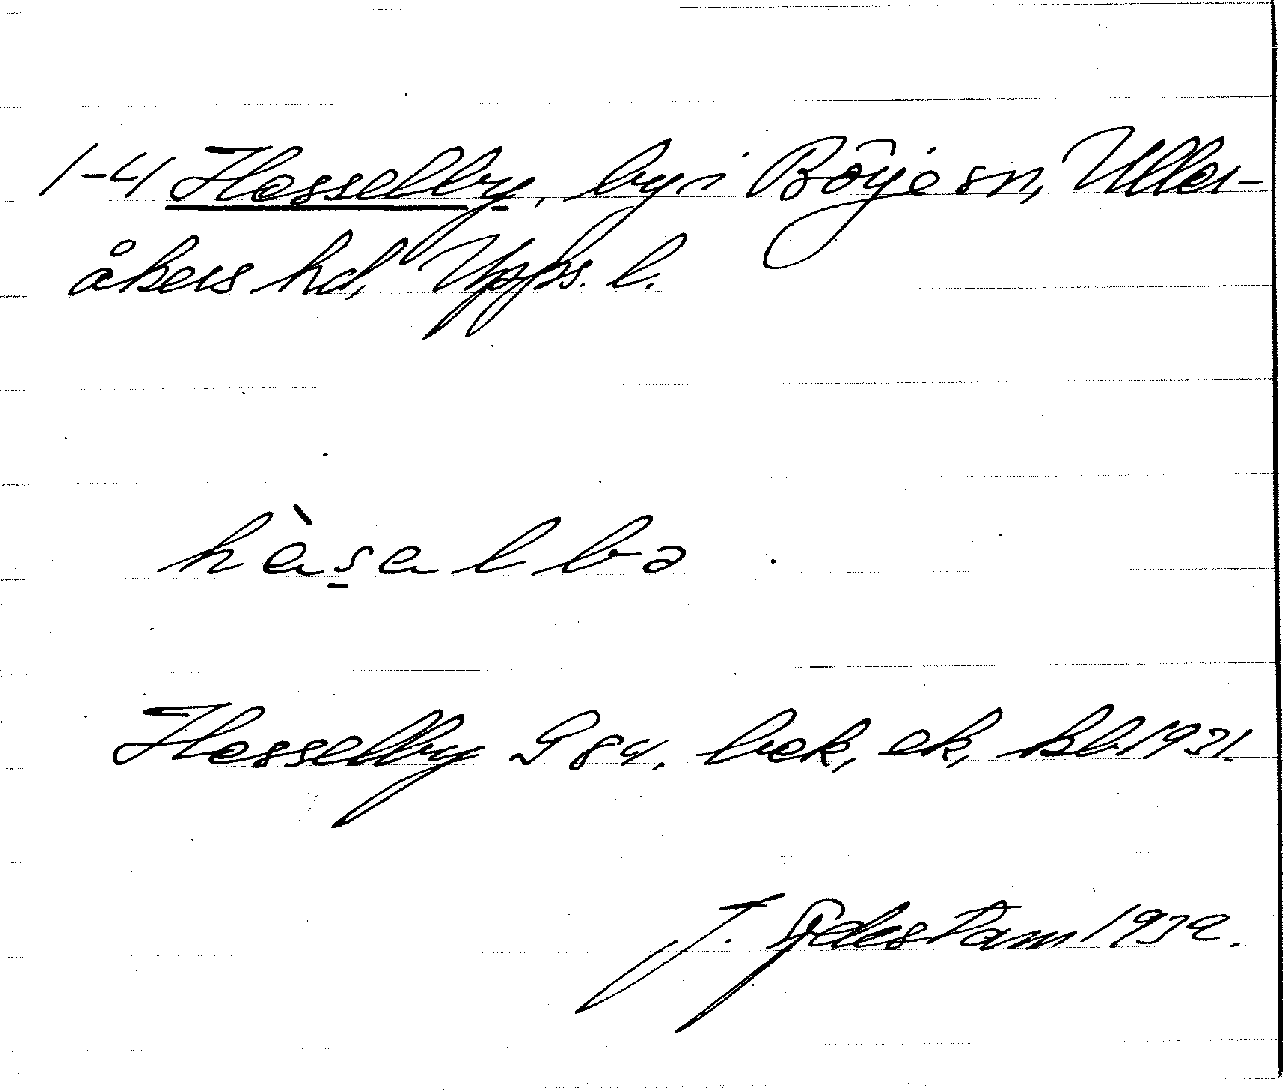 1-4 Hesselby, by i Börje sn, Uller-
åkers hd, Upps. l.
hàs̱albə
Hesselby G 84. bek, ek, kb 1931.
J. Sjdestam 1932.